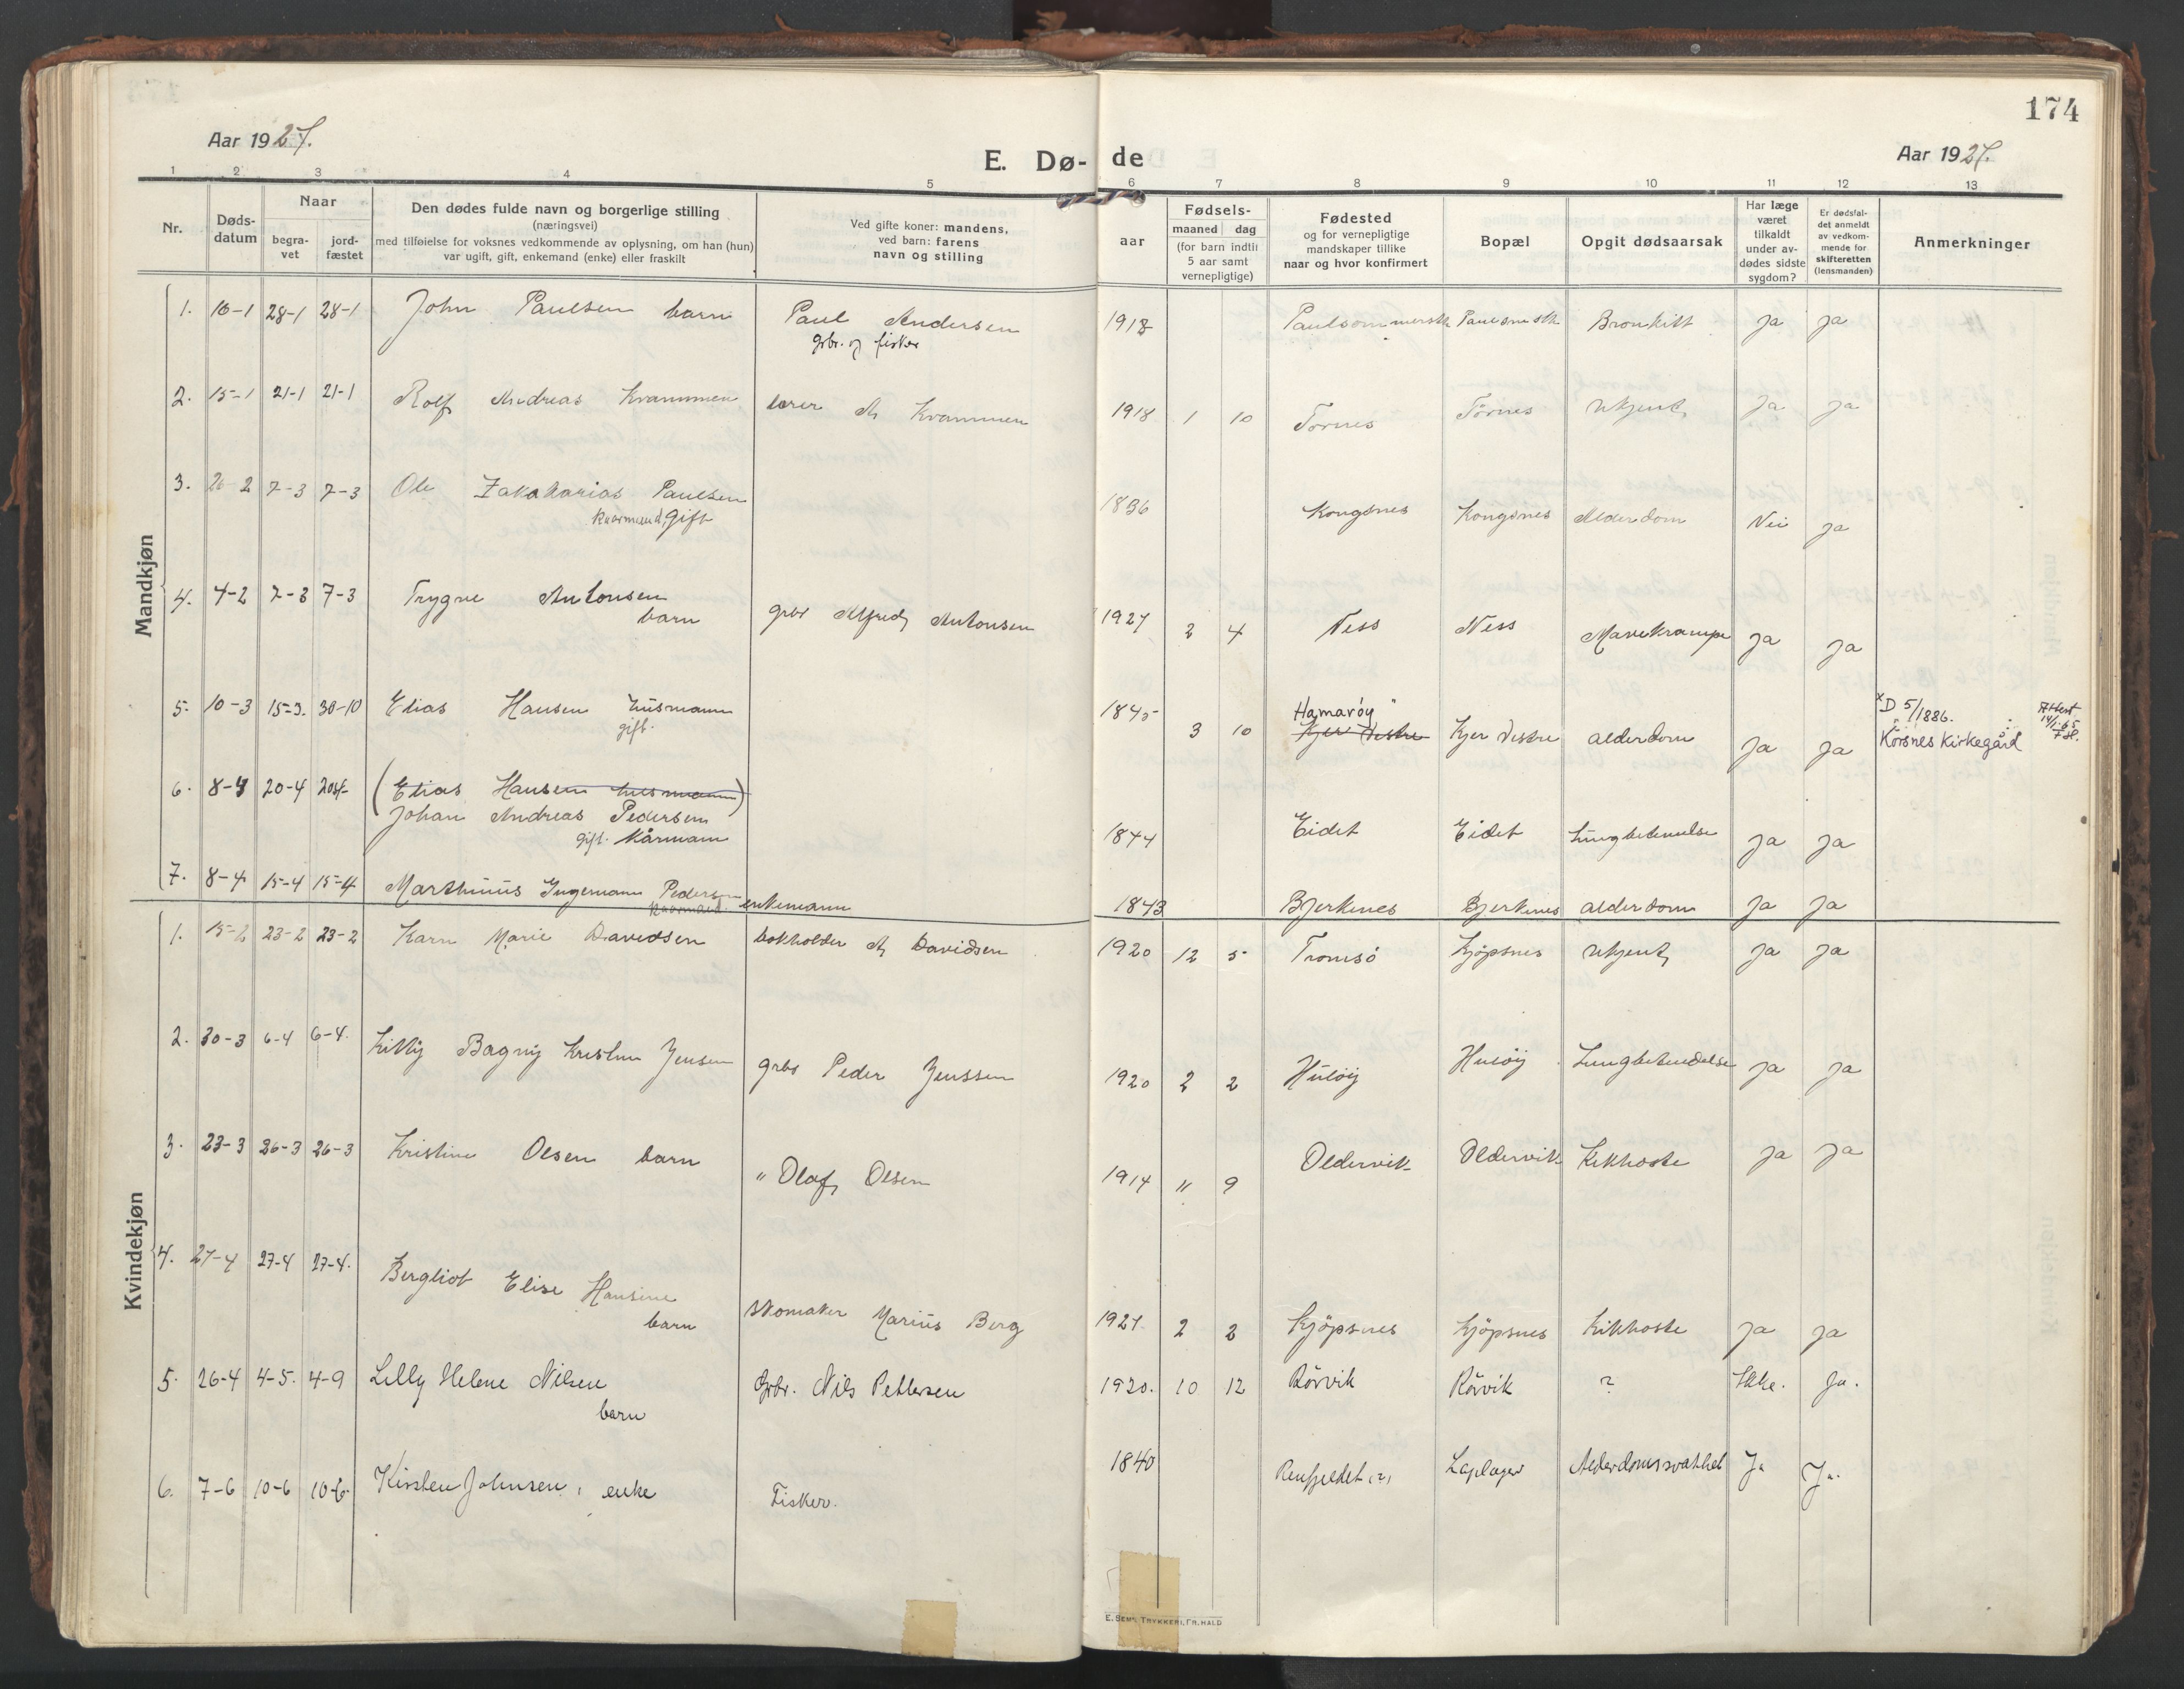 174
Aar 1927.
E. Dø- de
Aar 1927.
1 2 3 4 5 6 7 8 9 10 11 12 13
Nr.
Døds-
datum
Naar
begra-
vet
jord-
fæstet
Den dødes fulde navn og borgerlige stilling
(næringsvei)
med tilføielse for voksnes vedkommende av oplysning, om han (hun)
var ugift, gift, enkemand (enke) eller fraskilt
Ved gifte koner: mandens,
ved barn: farens
navn og stilling
aar
Fødsels-
maaned dag
(for barn indtil
5 aar samt
vernepligtige)
Fødested
og for vernepligtige
mandskaper tillike
naar og hvor konfirmert
Bopæl
Opgit dødsaarsak
Har læge
været
tilkaldt
under av-
dødes sidste
sygdom?
Er dødsfal-
det anmeldt
av vedkom-
mende for
skifteretten
(lensmanden)
Anmerkninger
Mandkjøn
1. 10-1 28-1 28-1 John Paulsen barn Paul Andersen 1918 Bronkitt Ja Ja
grbr. og fisker
2. 15-1 21-1 21-1 Rolf Andreas Kvammen lærer A Kvammen 1918 1 10 Tornes Tornes Ukjent Ja Ja
3. 26-2 7-3 7-3 Ole Zakarias Paulsen 1836 Kongsnes Kongsnes Alderdom Nei Ja
kaarmand, gift
4. 4-2 7-3 7-3 Trygve Antonsen grbr Alfred Antonsen 1927 2 4 Ness Ness Mavekrampe Ja Ja
barn
5. 10-3 15-3. 30-10 Elias Hansen husmann 1845 3 10 Hamarøy Kjer Vestre Kjer Vestre alderdom Ja Ja
gift.
D 5/1886.
Korsnes Kirkegård
Attest
14/1-65
6. 8-4 20-4 20-4 (Elias Hansen husmann)
Johan Andreas Pedersen 1844 Eidet Eidet Lungbetennelse Ja Ja
gift. Kårmann
7. 8-4 15-4 15-4 Marthinus Ingemann Pedersen enkemann 1843 Bjerknes Bjerknes alderdom Ja Ja
kaarmand.
Kvindekjøn
1. 15-2 23-2 23-2 Karn Marie Davidsen bokholder A Davidsen 1920 12 5 Tromsö Kjöpsnes Ukjent Ja Ja
2. 30-3 6-4 6-4. Kitty Dagny Kristine Jensen grbr Peder Jenssen 1920 2 2 Husöy Husöy Lungbetendelse Ja Ja
3. 23-3 26-3 26-3 Kristine Olsen barn " Olaf Olsen 1914 11 9 Oldervik Oldervik Kikhoste Ja Ja
4. 27-4 27-4 27-4. Bergliot Elise Hansine skomaker Marius Berg 1927. 2 2 Kjöpsnes Kjöpsnes Kikhoste Ja Ja
barn
5. 26-4 4-5. 4-9 Lilly Helene Nilsen Grbr. Nils Pettersen 1920. 10 12 Rörvik Rörvik ? Ikke. Ja.
barn
6. 7-6 10-6 10-6. Kirsten Johnsen, enke Fisker. 1840 Renfjeldet (?) Laplager Alderdomssvakhet Ja Ja.
E. Sem, Trykkeri, Fr.hald